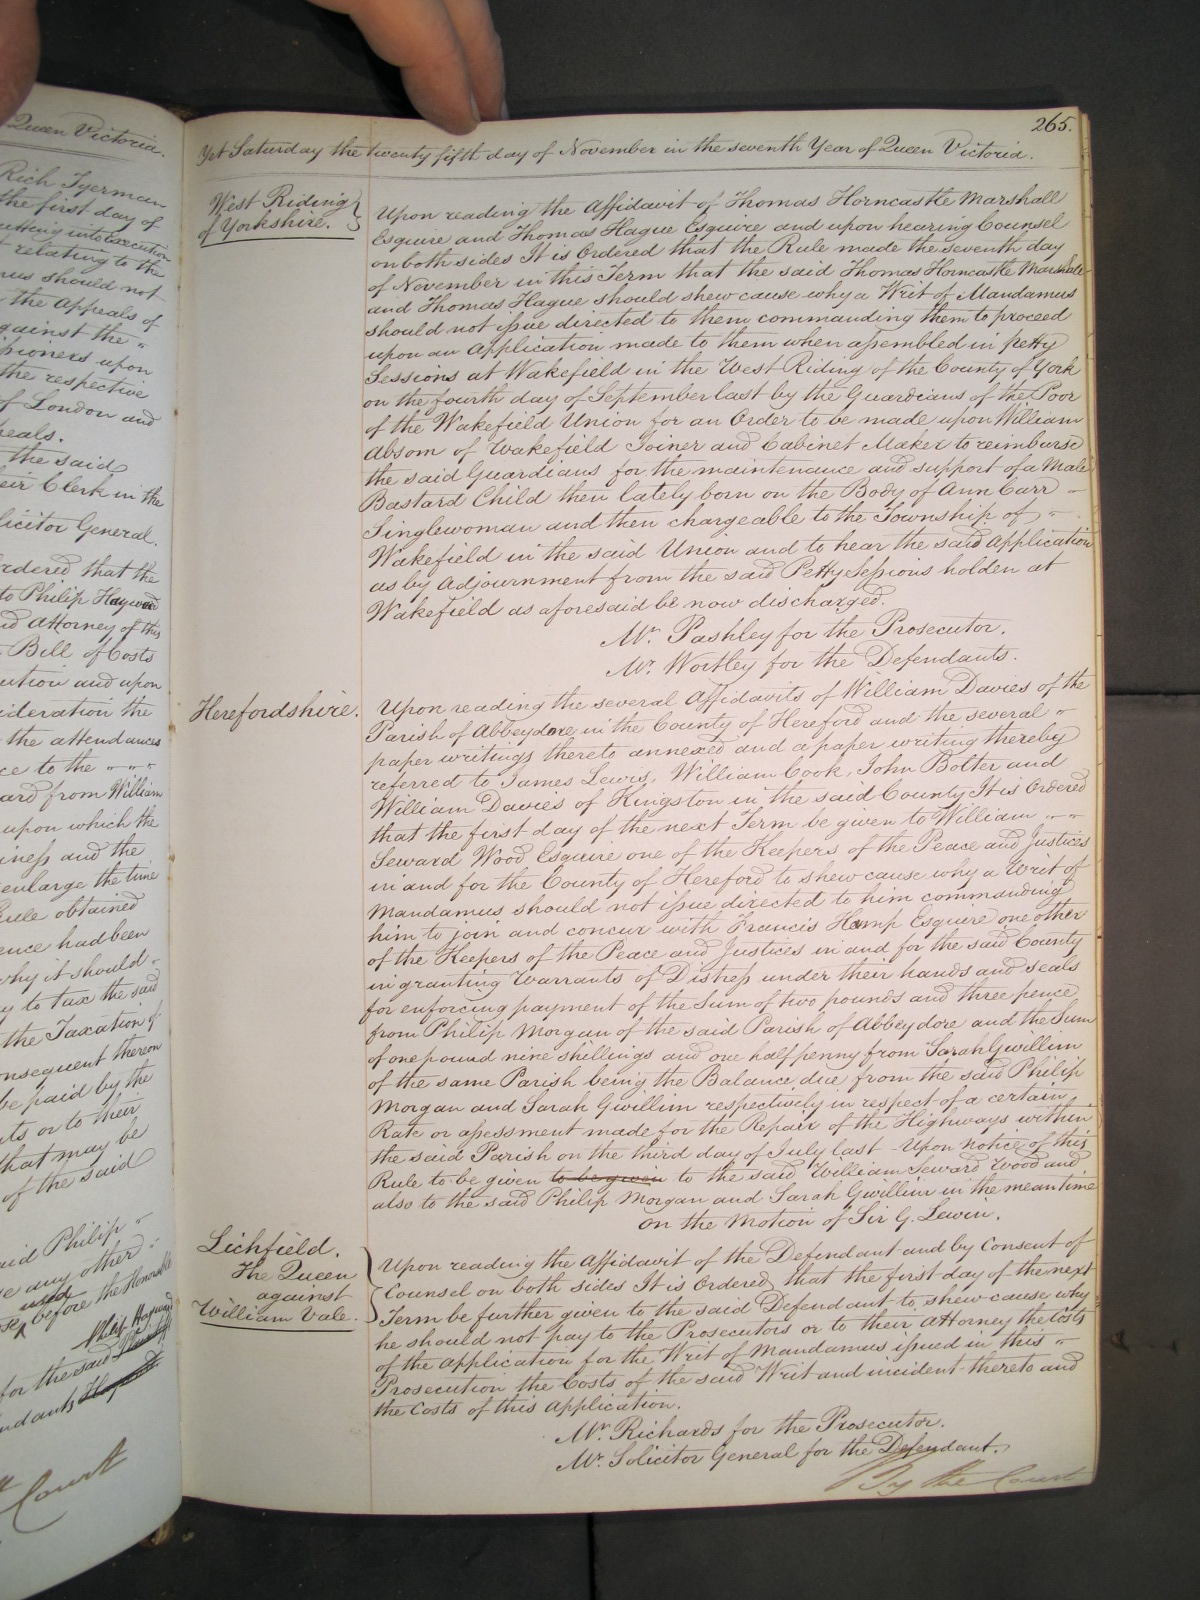 Queen Victoria.
Rich Tyerman
the first day of
putting into execution
t relating to the
mus should not
the Appeals of
gainst the
ssioners upon
the respective
of London and
peals.
the said
eir Clerk in the
licitor General.
rdered that the
to Philip Hayward
nd Attorney of this
Bill of Costs
ution and upon
ideration the
the attendances
ce to the
ard from William
upon which the
iness and the
enlarge the time
Rule obtained
ence had been
why it should
y to tax the said
the Taxation of
onsequent thereon
be paid by the
nts or to their
that may be
of the said
aid Philip
e any other
used
before the Honorable
for the said
ndants
Court
265.
Yet Saturday the twenty fifth day of November in the seventh Year of Queen Victoria.
West Riding
of Yorkshire.
Upon reading the Affidavit of Thomas Horncastle Marshall
Esquire and Thomas Hague Esquire and upon hearing Counsel
on both sides It is Ordered that the Rule made the seventh day
of November in this Term that the said Thomas Horncastle Marshall
and Thomas Hague should shew cause why a Writ of Mandamus
should not issue directed to them commanding them to proceed
upon an Application made to them when assembled in petty
Sessions at Wakefield in the West Riding of the County of York
on the fourth day of September last by the Guardians of the Poor
of the Wakefield Union for an Order to be made upon William
Absom of Wakefield Joiner and Cabinet Maker to reimburse
the said Guardians for the maintenance and support of a Male
Bastard Child then lately born on the Body of Ann Carr
Singlewoman and then chargeable to the Township of
Wakefield in the said Union and to hear the said Application
as by Adjournment from the said Petty Sessions holden at
Wakefield as aforesaid be now discharged.
Mr. Pashley for the Prosecutor.
Mr. Wortley for the Defendants.
Herefordshire.
Upon reading the several Affidavits of William Davies of the
Parish of Abbeydore in the County of Hereford and the several
paper writings thereto annexed and a paper writing thereby
referred to James Lewis, William Cook, John Bolter and
William Davies of Kingston in the said County It is Ordered
that the first day of the next Term be given to William
Seward Wood Esquire one of the Keepers of the Peace and Justices
in and for the County of Hereford to shew cause why a Writ of
Mandamus should not issue directed to him commanding
him to join and concur with Francis Hamp Esquire one other
of the Keepers of the Peace and Justices in and for the said County
in granting Warrants of Distress under their hands and seals
for enforcing payment of the Sum of two pounds and three pence
from Philip Morgan of the said Parish of Abbeydore and the Sum
of one pound nine shillings and one halfpenny from Sarah Gwillim
of the same Parish being the Balance due from the said Philip
Morgan and Sarah Gwillim respectively in respect of a certain
Rate or assessment made for the Repair of the Highways within
the said Parish on the third day of July last - Upon notice of this
Rule to be given to be given to the said William Seward Wood and
also to the said Philip Morgan and Sarah Gwillim in the mean time
On the Motion of Sir G. Lewin.
Lichfield.
The Queen
against
William Vale.
Upon reading the Affidavit of the Defendant and by Consent of
Counsel on both sides It is Ordered that the first day of the next
Term be further given to the said Defendant to shew cause why
he should not pay to the Prosecutors or to their Attorney the Costs
of the Application for the Writ of Mandamus issued in this
Prosecution the Costs of the said Writ and incident thereto and
the Costs of this Application.
Mr. Richards for the Prosecutor.
Mr. Solicitor General for the Defendant.
By the Court